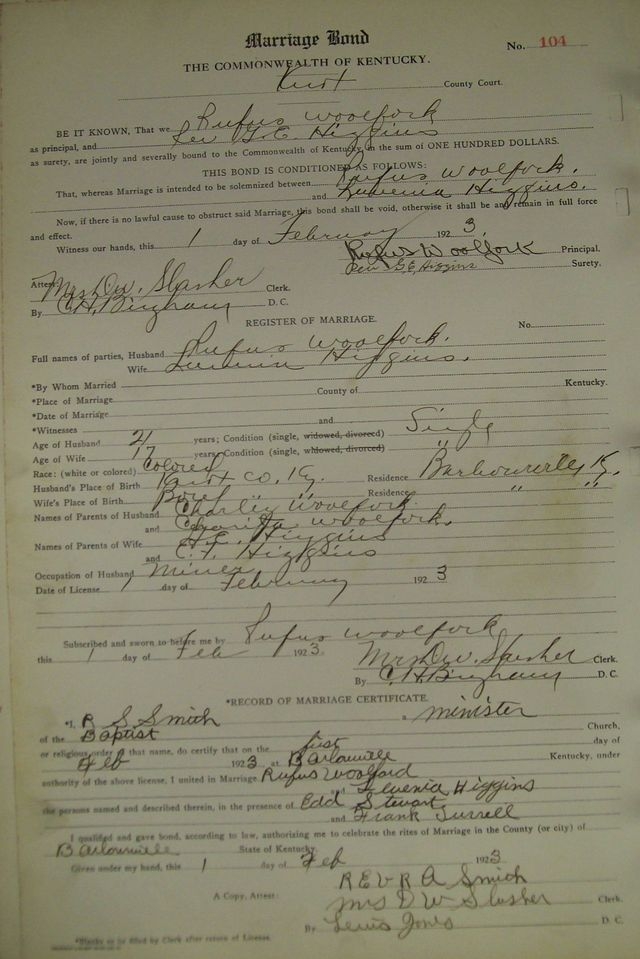 Marriage Bond
No. 104
THE COMMONWEALTH OF KENTUCKY.
Knox County Court.
BE IT KNOWN, That we Rufus Woolfork
as principal, and Rev G. E. Higgins
as surety, are jointly and severally bound to the Commonwealth of Kentucky in the sum of ONE HUNDRED DOLLARS.
THIS BOND IS CONDITIONED AS FOLLOWS:
That, whereas Marriage is intended to be solemnized between Rufus Woolfork.
and Luvenia Higgins.
Now, if there is no lawful cause to obstruct said Marriage, this bond shall be void, otherwise it shall be and remain in full force
and effect.
Witness our hands, this 1 day of February 1923.
Rufus Woolfork Principal.
Rev G. E. Higgins Surety.
Attest Mrs D.W. Slusher Clerk.
By C.H. Bingham D. C.
REGISTER OF MARRIAGE.
No.
Full names of parties, Husband Rufus Woolfork.
Wife Higgins.
*By Whom Married
*Place of Marriage County of Kentucky.
*Date of Marriage
*Witnesses and
Age of Husband 21 years; Condition (single, widowed, divorced) Single
Age of Wife 17 years; Condition (single, widowed, divorced) "
Race: (white or colored) Colored
Husband's Place of Birth Knox Co. Ky. Residence Barbourville Ky.
Wife's Place of Birth " " Residence " "
Names of Parents of Husband Charley Woolfork
and Woolfork.
Names of Parents of Wife G.E. Higgins
and Higgins
Occupation of Husband Miner
Date of License 1 day of February 1923
Subscribed and sworn to before me by Rufus Woolfork
this 1 day of Feb 1923.
Mrs D.W. Slusher Clerk.
By C.H. Bingham D. C.
*RECORD OF MARRIAGE CERTIFICATE.
*I, R S Smith a minister
of the Baptist Church,
or religious order of that name, do certify that on the first day of
Feb 1923 at Kentucky, under
authority of the above license, I united in Marriage Rufus Woolford
and Higgins
the persons named and described therein, in the presence of Edd Stewart
and Frank
I qualified and gave bond, according to law, authorizing me to celebrate the rites of Marriage in the County (or city) of
State of Kentucky.
Given under my hand, this 1 day of Feb 1923
REV R A Smith
A Copy, Attest: Mrs D W Slusher Clerk.
By Lewis Jones D. C.
*Blanks to be filled by Clerk after return of License.